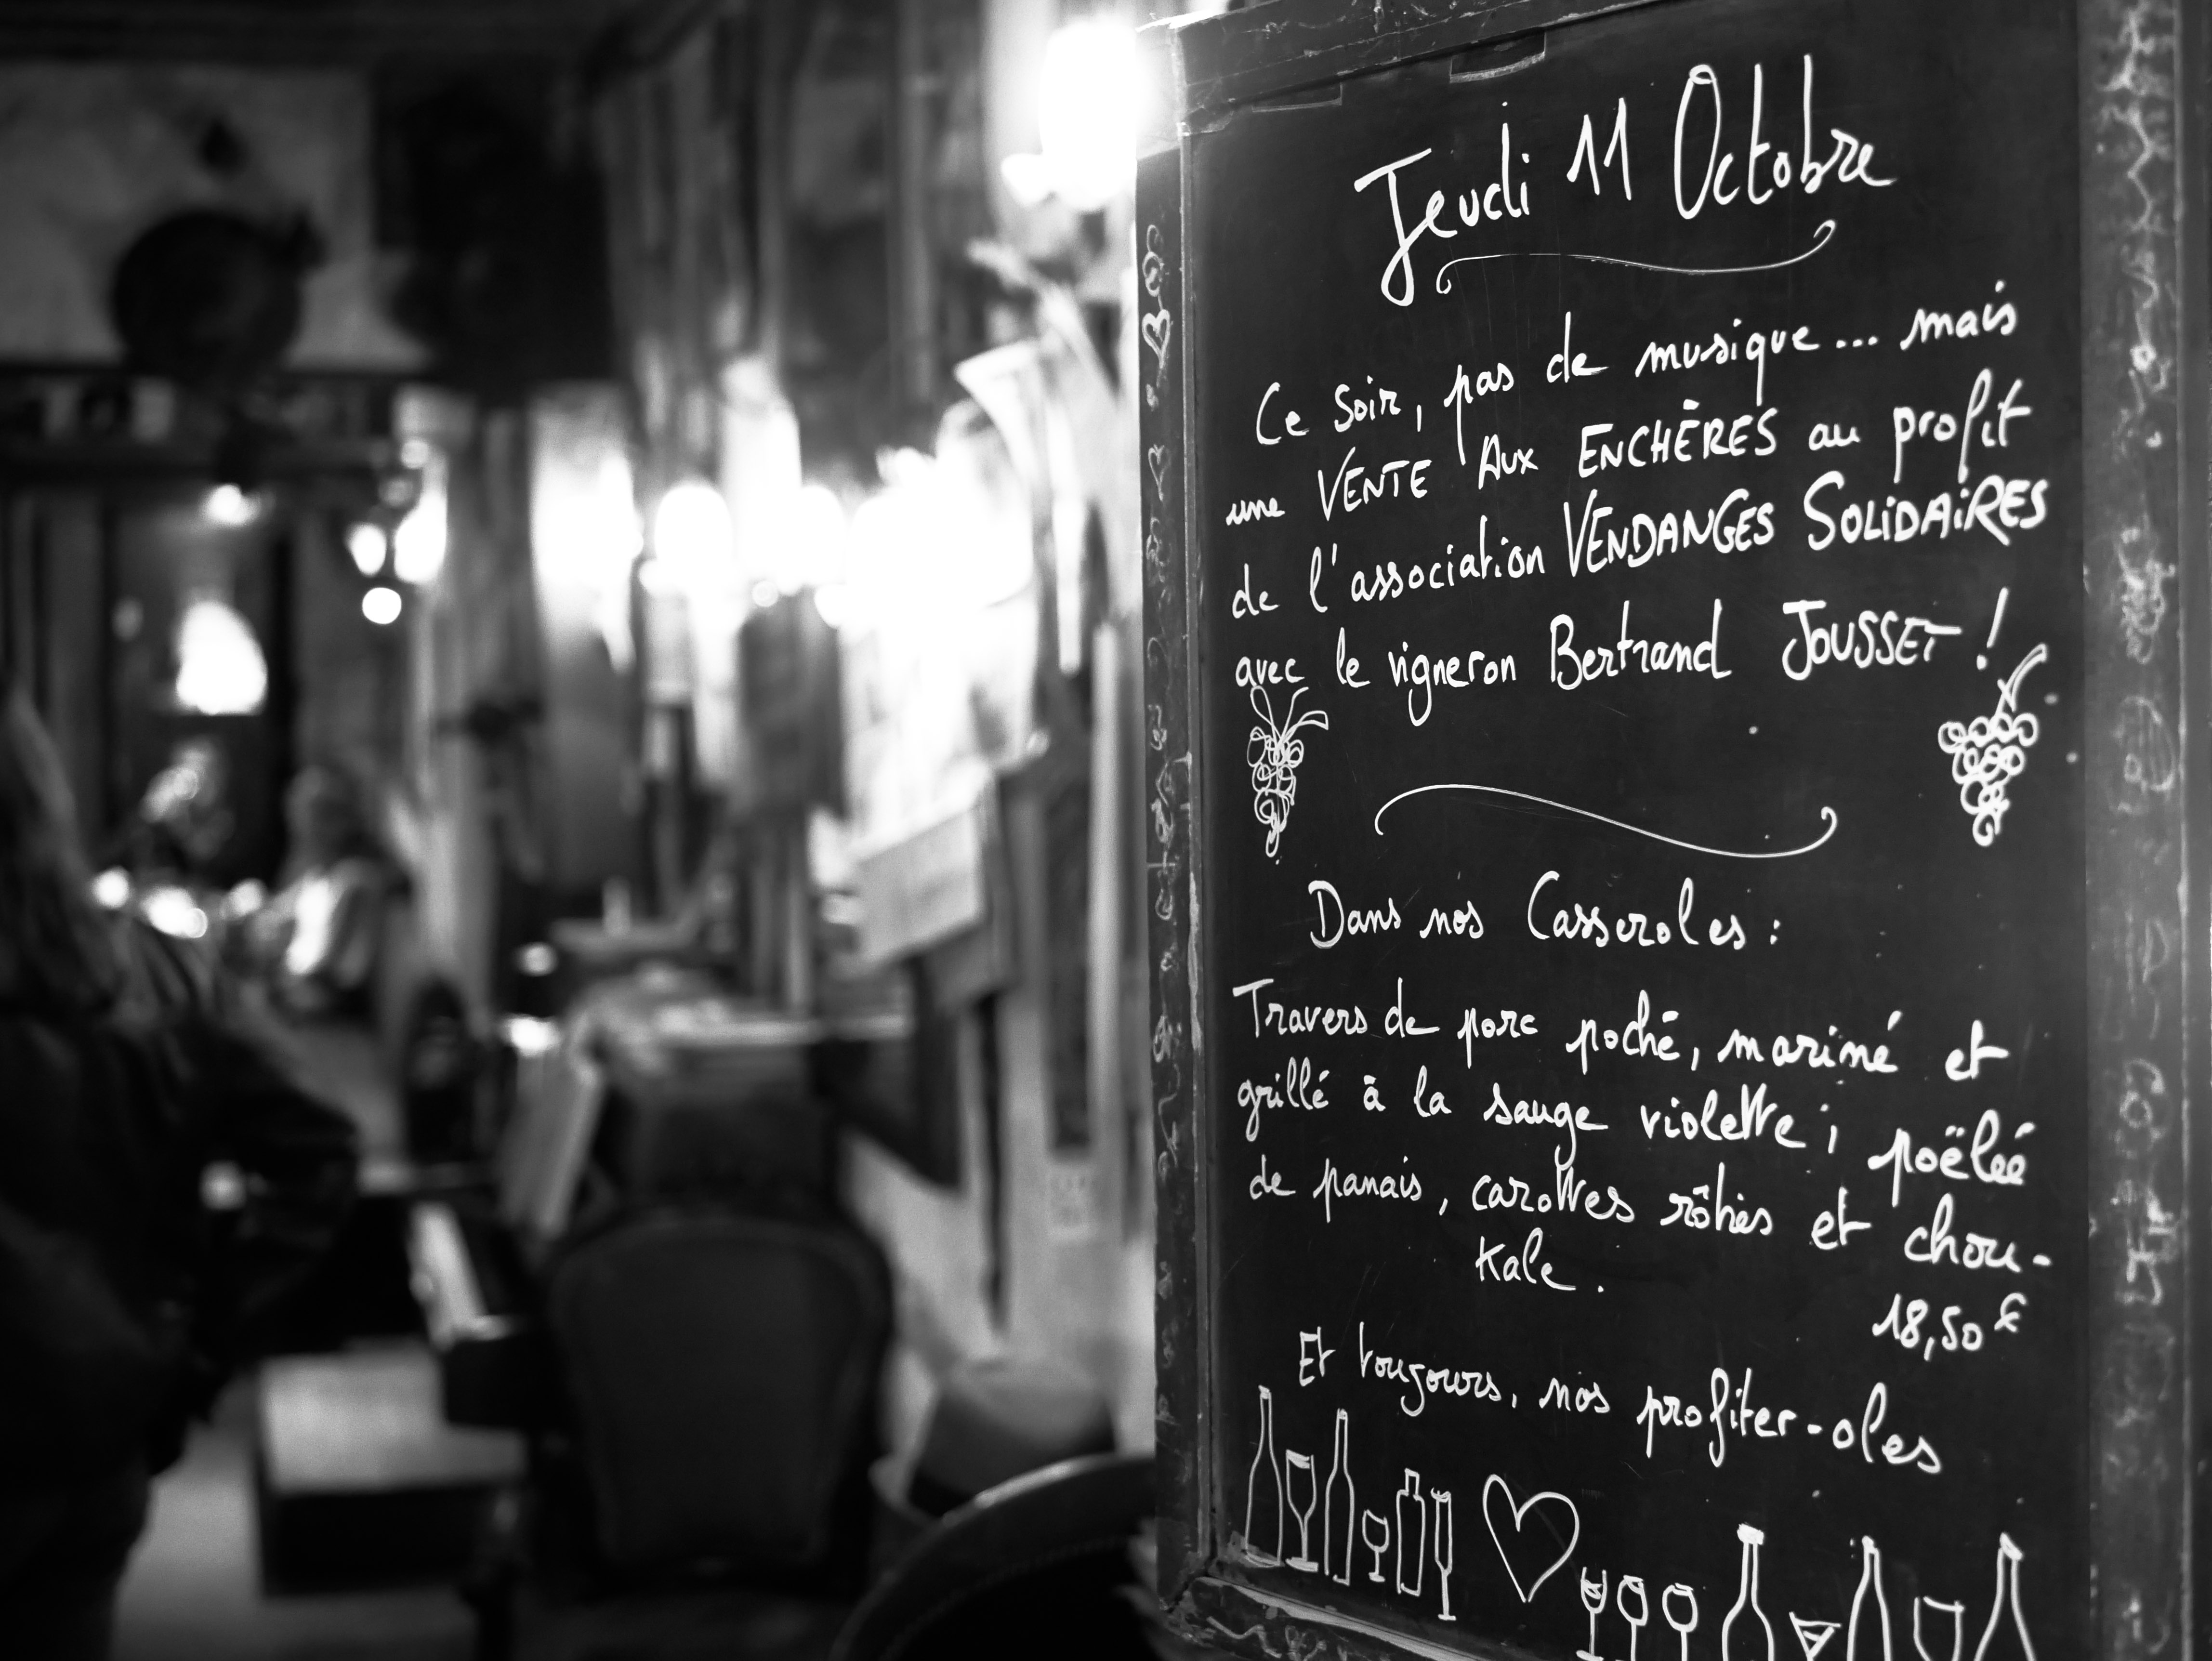 Jeudi 11 Octobre
Ce soir, pas de musique... mais
une VENTE AUX ENCHÈRES au profit
de l'association VENDANGES SOLIDAIRES
avec le vigneron Bertrand JOUSSET !
Dans nos Casseroles :
Travers de porc poché, mariné et
grillé à la sauge violette ; poëlée
de panais, carottes rôties et chou-
Kale.
18,50 €
Et toujours, nos profiter-oles